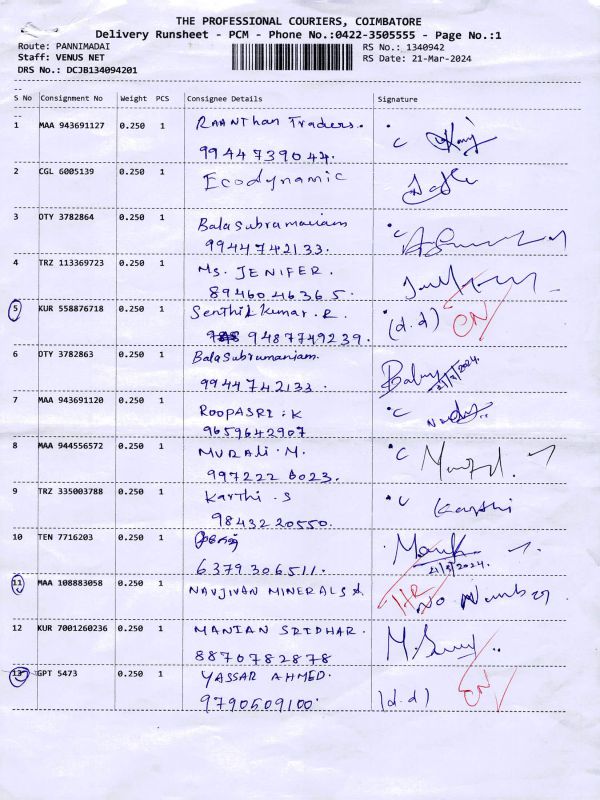 THE PROFESSIONAL COURIERS, COIMBATORE
Delivery Runsheet - PCM - Phone No.:0422-3505555 - Page No.:1
Route: PANNIMADAI
Staff: VENUS NET
DRS No.: DCJB134094201
RS No.: 1340942
RS Date: 21-Mar-2024
S No Consignment No Weight PCS Consignee Details Signature
1 MAA 943691127 0.250 1 RAANThan Traders.
9944739044.
2 CGL 6005139 0.250 1 Ecodynamic
3 OTY 3782864 0.250 1 Balasubramaniam
9944742133.
4 TRZ 113369723 0.250 1 Ms. JENIFER.
8946046365.
5 KUR 558876718 0.250 1 Senthil Kumar. R. (d.d) CN
9487749239.
6 OTY 3782863 0.250 1 Balasubramaniam.
9944742133. 21/3/2024.
7 MAA 943691120 0.250 1 ROOPASRI. K
9659642907
8 MAA 944556572 0.250 1 MURALI. M.
997222 6023.
9 TRZ 335003788 0.250 1 Karthi. S Karthi
9843220550.
10 TEN 7716203 0.250 1
6379306511. 21/3/2024.
11 MAA 108883058 0.250 1 NAVJIVAN MINERALS No Number
12 KUR 7001260236 0.250 1 MANIAN SRIDHAR.
8870782878
13 GPT 5473 0.250 1 YASSAR AHMED. (d.d) CN
9790509100.